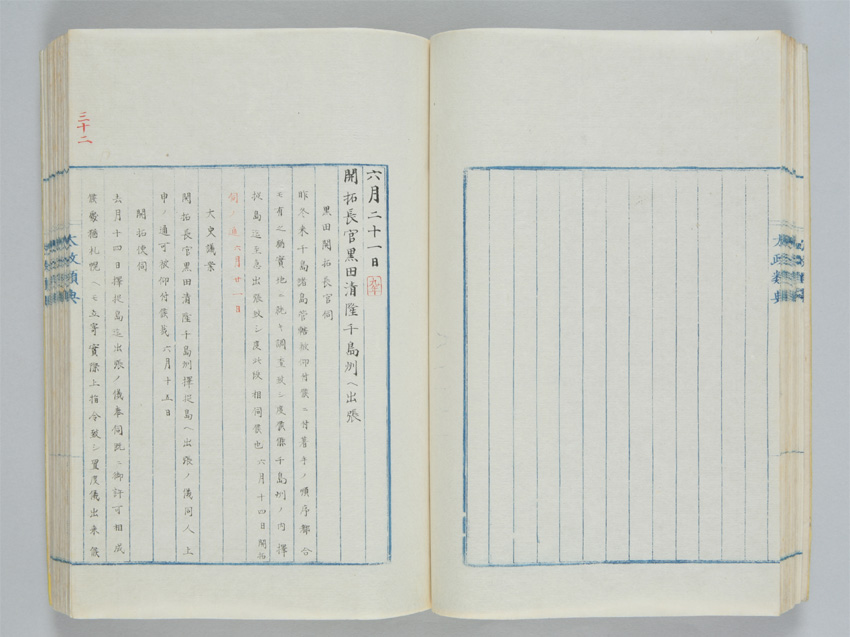 太政類典
六月二十一日 九年
開拓長官黒田清隆千島州ヘ出張
黒田開拓長官伺
昨冬来千島諸島管轄被仰付候ニ付着手ノ順序都合
モ有之猶実地ニ就キ調査致シ度候条千島州ノ内擇
捉島迄至急出張致シ度此段相伺候也 六月十四日 開拓
伺ノ通 六月廿一日
大史議案
開拓長官黒田清隆千島州擇捉島ヘ出張ノ儀伺人上
申ノ通可被仰付候哉 六月十五日
開拓使伺
去月十四日擇捉島迄出張ノ儀奉伺既ニ御許可相成
候処猶札幌ヘモ立寄実際上指令致シ置度儀出来候
三十二
太政類典